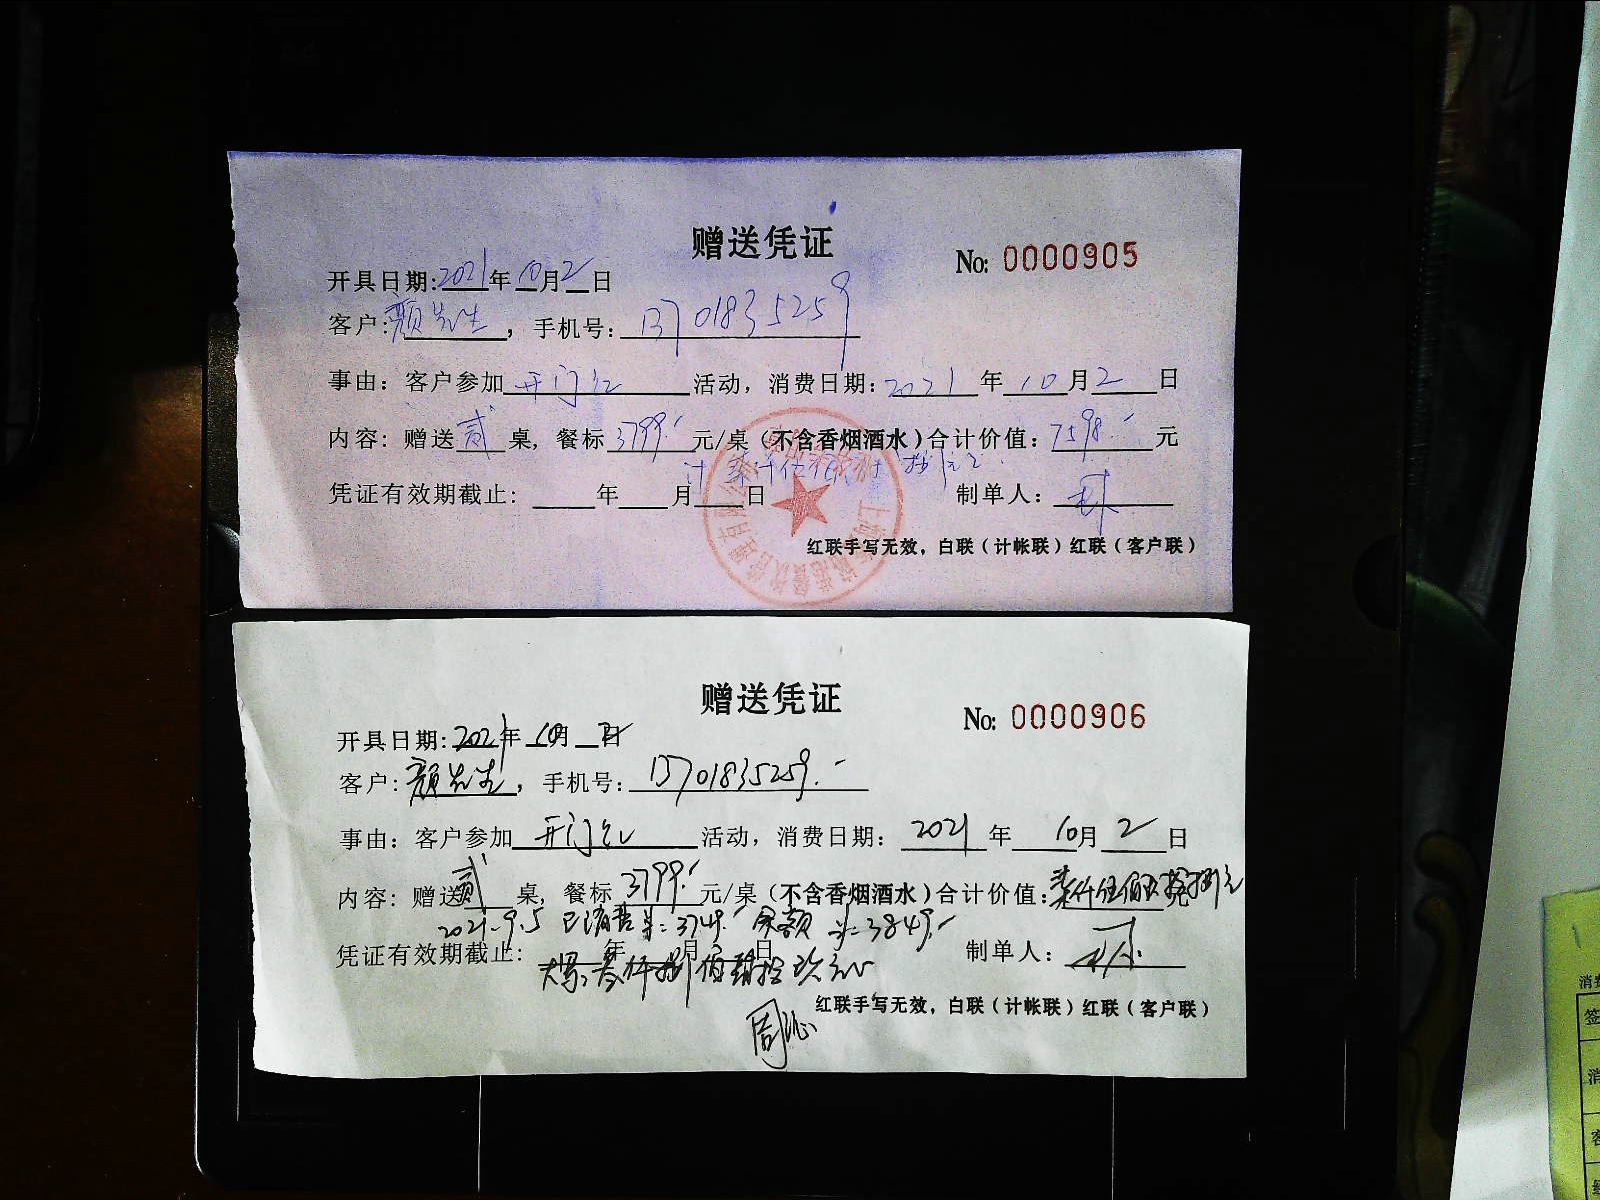 赠送凭证
No: 0000905
开具日期:2021年10月2日
客户:颜先生,手机号:13701835259
事由:客户参加开门红活动,消费日期:2021年10月2日
内容:赠送贰桌,餐标3799.-元/桌(不含香烟酒水)合计价值:7598.-元
计柒仟伍佰玖拾捌元正
凭证有效期截止: 年 月 日 制单人:
红联手写无效,白联(计帐联)红联(客户联)
赠送凭证
No: 0000906
开具日期:2021年10月2日
客户:颜先生,手机号:13701835259.-
事由:客户参加开门红活动,消费日期:2021年10月2日
内容:赠送贰桌,餐标3799.-元/桌(不含香烟酒水)合计价值:柒仟伍佰玖拾捌元
2021.9.5 已消费¥:3749.- 余额¥:3849.-
凭证有效期截止: 年 月 日 制单人:
大写:叁仟捌佰肆拾玖元
红联手写无效,白联(计帐联)红联(客户联)
消费
签
消
客